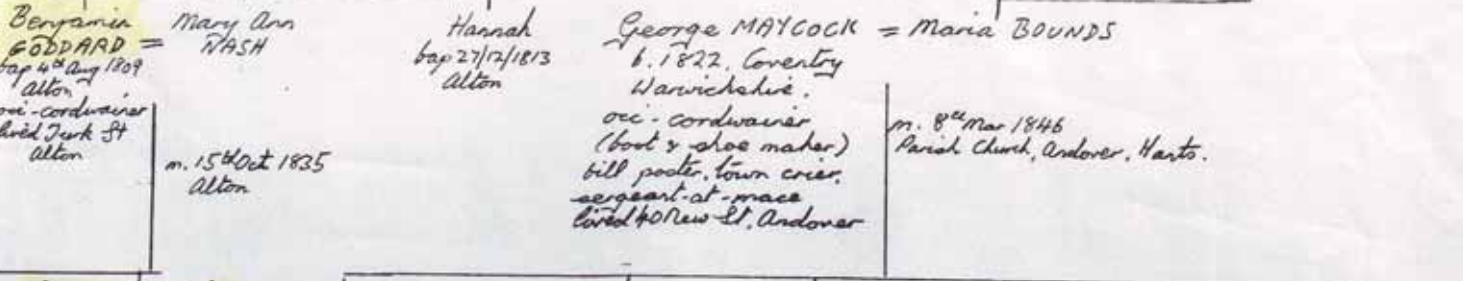 Benjamin
GODDARD =
bap 4th Aug 1809
Alton
occ-cordwainer
lived Turk St
Alton
Mary Ann
NASH
m. 15th Oct 1835
Alton
Hannah
bap 27/12/1813
Alton
George MAYCOCK = Maria BOUNDS
b. 1822, Coventry
Warwickshire.
occ - cordwainer
(boot & shoe maker)
bill poster, town crier,
sergeant-at-mace
lived 40 New St, Andover
m. 8th Mar 1846
Parish Church, Andover, Hants.